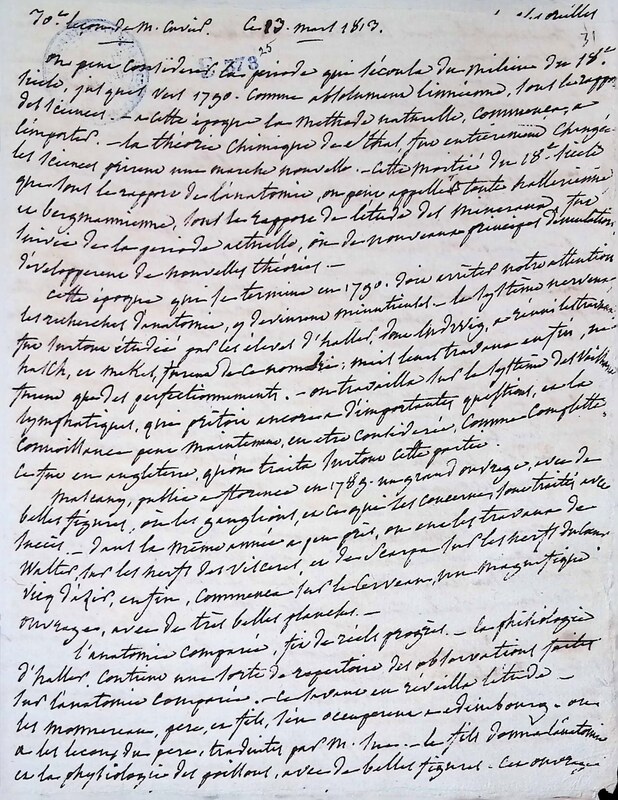 70e leçon de M. Cuvier. Ce 23. mars 1813.
31
25
on peut considerer la periode qui s'écoula du milieu du 18e
siecle, jusques vers 1790. comme absolument linneenne, sous le rapport
des sciences. - a cette époque la methode naturelle, commença, a
l'emporter. - la théorie chimique de sthal, fut entierement changée
les sciences prirent une marche nouvelle. - cette moitié du 18e siecle
que sous le rapport de l'anatomie, on peut appeller toute hallerienne
et bergmannienne, sous le rapport de l'étude des mineraux, fut
suivie de la periode actuelle, où de nouveaux principes d'émulation
développerent de nouvelles théories. -
cette époque qui se termine en 1790. doit arrêter notre attention
les recherches d'anatomie, y devinrent minutieuses. - le système nerveux
fut surtout étudié par les eleves d'haller, dont a reuni les travaux
et mekel, furent de ce nombre; mais leurs travaux enfin, ne
furent que des perfectionnements. - on travailla sur le système des vaisseaux
lymphatiques, qui prêtoit encore a d'importantes questions, et la
connoissance peut maintenant, en etre considerée, comme complette.
ce fut en angleterre, qu'on traita surtout cette partie. -
Mascany, publia a florence en 1789. un grand ouvrage, avec de
belles figures, où les ganglions, et ce qui les concerne, sont traités avec
succès. - dans la même année a peu près, on eut les travaux de
Walter, sur les nerfs des visceres, et de scarpa sur les nerfs du cœur
Vicq d'azir, enfin, commença sur le cerveau, un magnifique
ouvrage, avec de très belles planches. -
l'anatomie comparée, fit de réels progrès. - la phisiologie
d'haller contient une sorte de repertoire des observations faites
sur l'anatomie comparée. - ce savant en réveilla l'étude -
les monnereau, pere, et fils, s'en occuperent a edimbourg - on
a les leçons du pere, traduites par M. Sue. - le fils donna l'anatomie
et la physiologie des poissons, avec de belles figures. - cet ouvrage